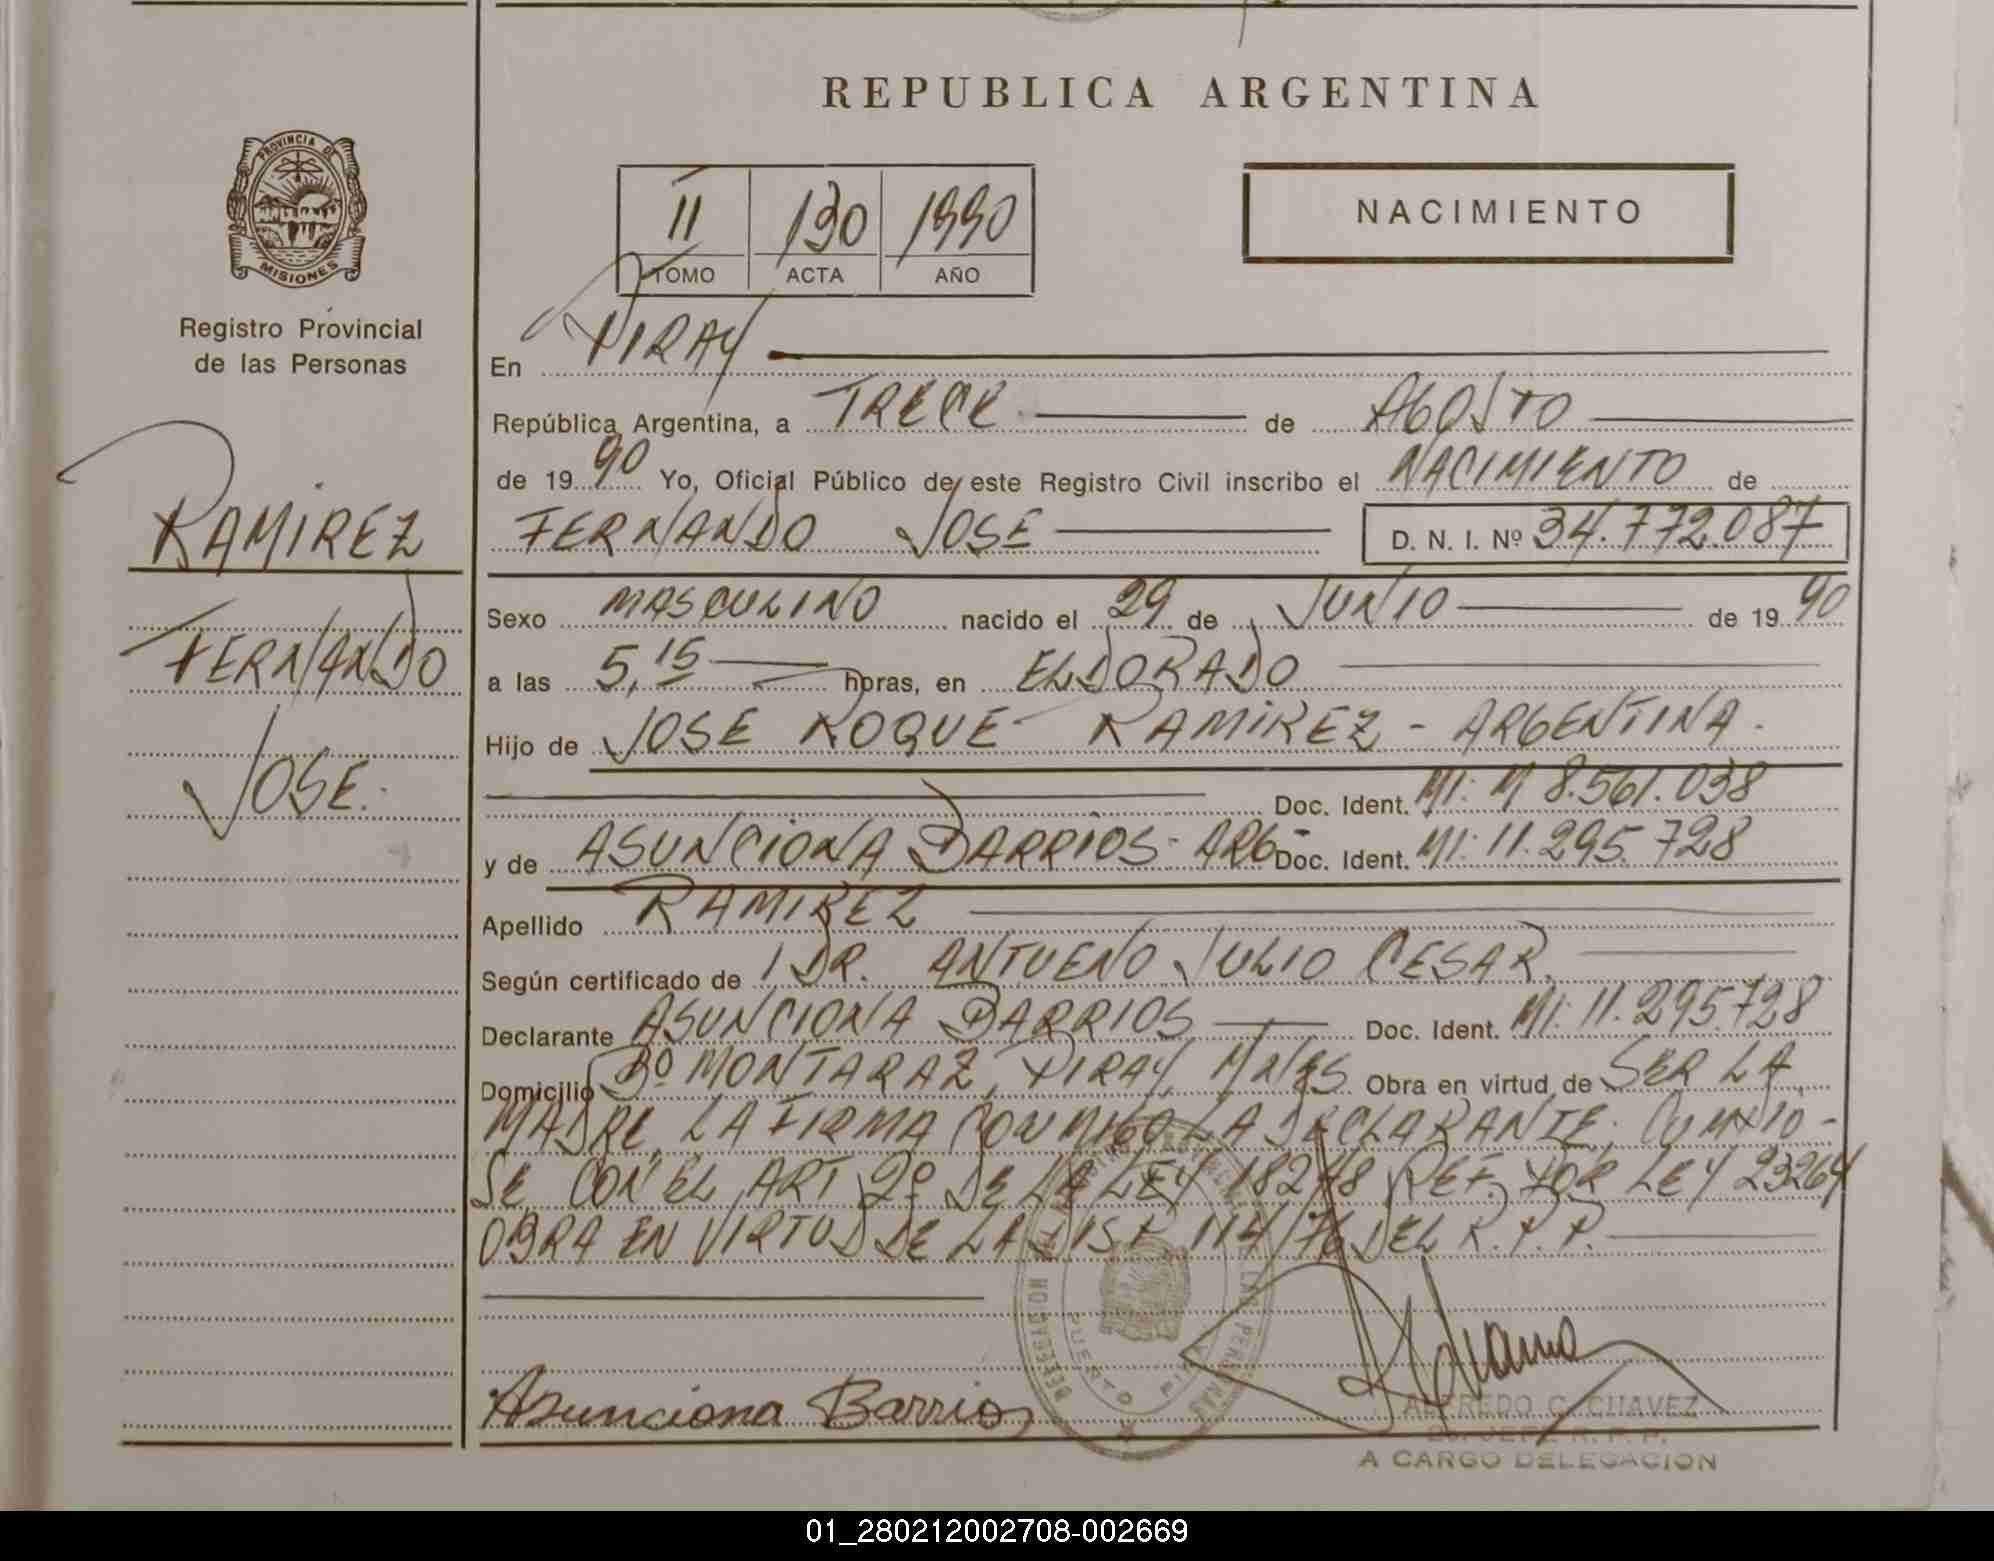 REPUBLICA ARGENTINA
PROVINCIA DE MISIONES
Registro Provincial
de las Personas
II 130 1990
TOMO ACTA AÑO
NACIMIENTO
RAMIREZ
FERNANDO
JOSE.
En PIRAY
República Argentina, a TRECE de AGOSTO
de 1990 Yo, Oficial Público de este Registro Civil inscribo el NACIMIENTO de
FERNANDO JOSE D. N. I. Nº 34.772.087
Sexo MASCULINO nacido el 29 de JUNIO de 1990
a las 5,15 horas, en ELDORADO
Hijo de JOSE ROQUE RAMIREZ - ARGENTINA.
Doc. Ident. MI: M 8.561.038
y de ASUNCIONA BARRIOS - ARG- Doc. Ident. MI: 11.295.728
Apellido RAMIREZ
Según certificado de DR. ANTUENO JULIO CESAR.
Declarante ASUNCIONA BARRIOS Doc. Ident. MI: 11.295.728
Domicilio Bº MONTARAZ, PIRAY, MNES Obra en virtud de SER LA
MADRE, LA FIRMA CONMIGO LA DECLARANTE. CUMPLIO-
SE CON EL ART 2º DE LA LEY 18248 REF. POR LEY 23264
OBRA EN VIRTUD DE LA DISP. 114/76 DEL R.P.P.
Asunciona Barrios
PUERTO PIRAY
ALFREDO C. CHAVEZ
JEFE R. P. P.
A CARGO DELEGACION
01_280212002708-002669